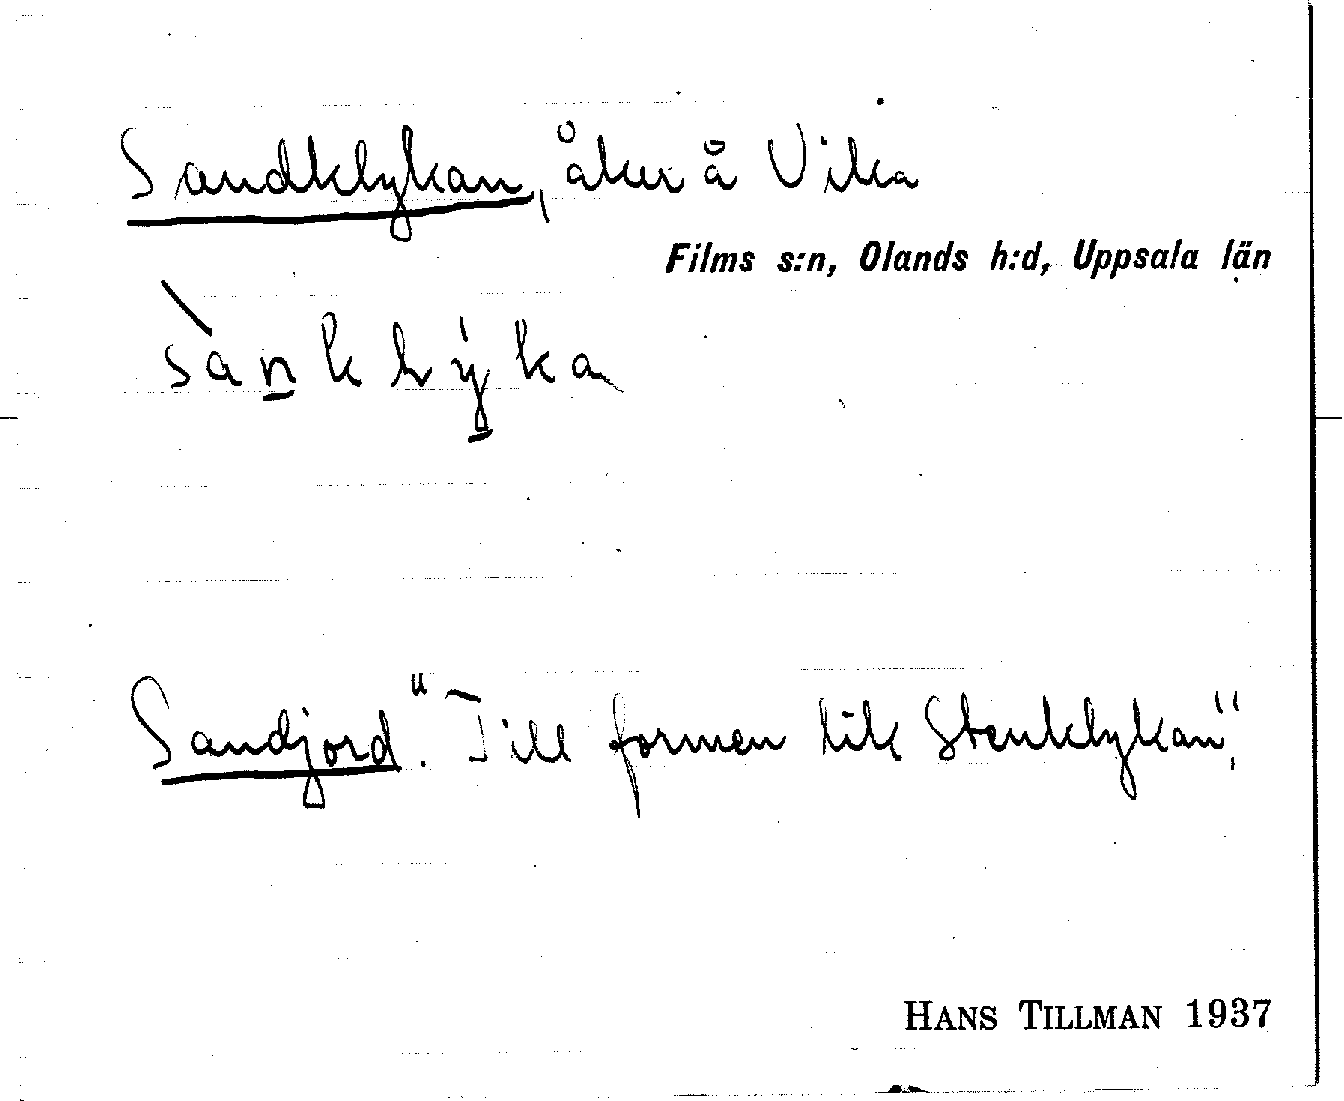 Sandklykan, åker å Vika
Films s:n, Olands h:d, Uppsala län
sànklýka
Sandjord. "Till formen lik Stenklykan",
HANS TILLMAN 1937